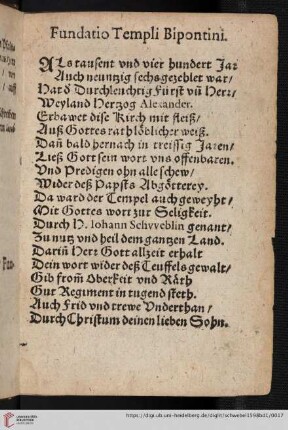 Fundatio Templi Bipontini.
ALs tausent vnd vier hundert Jar
Auch neuntzig sechs gezehlet war/
Hatd Durchleuchtig Fürst vn̄ Herr/
Weyland Hertzog Alexander.
Erbawet dise Kirch mit fleiß/
Auß Gottes rath löblicher weiß.
Dan̄ bald hernach in treissig Jaren/
Ließ Gott sein wort vns offenbaren.
Vnd Predigen ohn alle schew/
Wider deß Papsts Abgötterey.
Da ward der Tempel auch geweyht/
Mit Gottes wort zur Seligkeit.
Durch H. Iohann Schvveblin genant/
Zu nutz vnd heil dem gantzen Land.
Darin̄ Herr Gott allzeit erhalt
Dein wort wider deß Teuffels gewalt/
Gib from̄ Oberkeit vnd Räth
Gut Regiment in tugend steth.
Auch Frid vnd trewe Vnderthan/
Durch Christum deinen lieben Sohn.
https://digi.ub.uni-heidelberg.de/diglit/schwebel1598bd1/0017